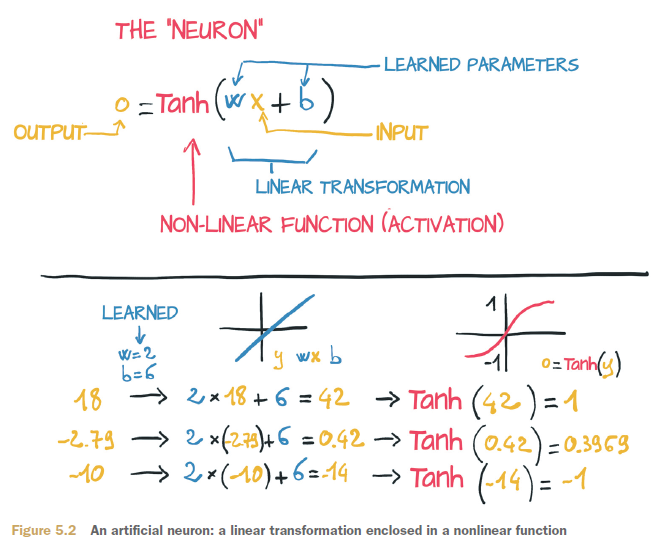 THE "NEURON"
LEARNED PARAMETERS
o = Tanh (wx + b)
OUTPUT
INPUT
LINEAR TRANSFORMATION
NON-LINEAR FUNCTION (ACTIVATION)
LEARNED
w=2
b=6
y wx b
1
-1
o=Tanh(y)
18 → 2 × 18 + 6 = 42 → Tanh (42) = 1
-2.79 → 2 × (-2.79)+6 = 0.42 → Tanh (0.42) = 0.3969
-10 → 2 × (-10) + 6 = -14 → Tanh (-14) = -1
Figure 5.2 An artificial neuron: a linear transformation enclosed in a nonlinear function